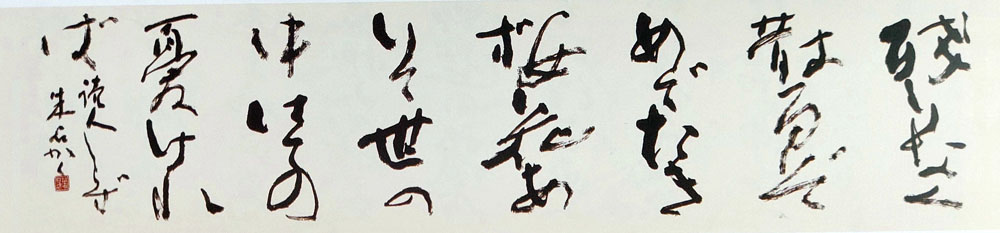 残りなく
散るぞ
めでたき
桜花あ
りて世の
中はての
憂けれ
ば
読人しらず